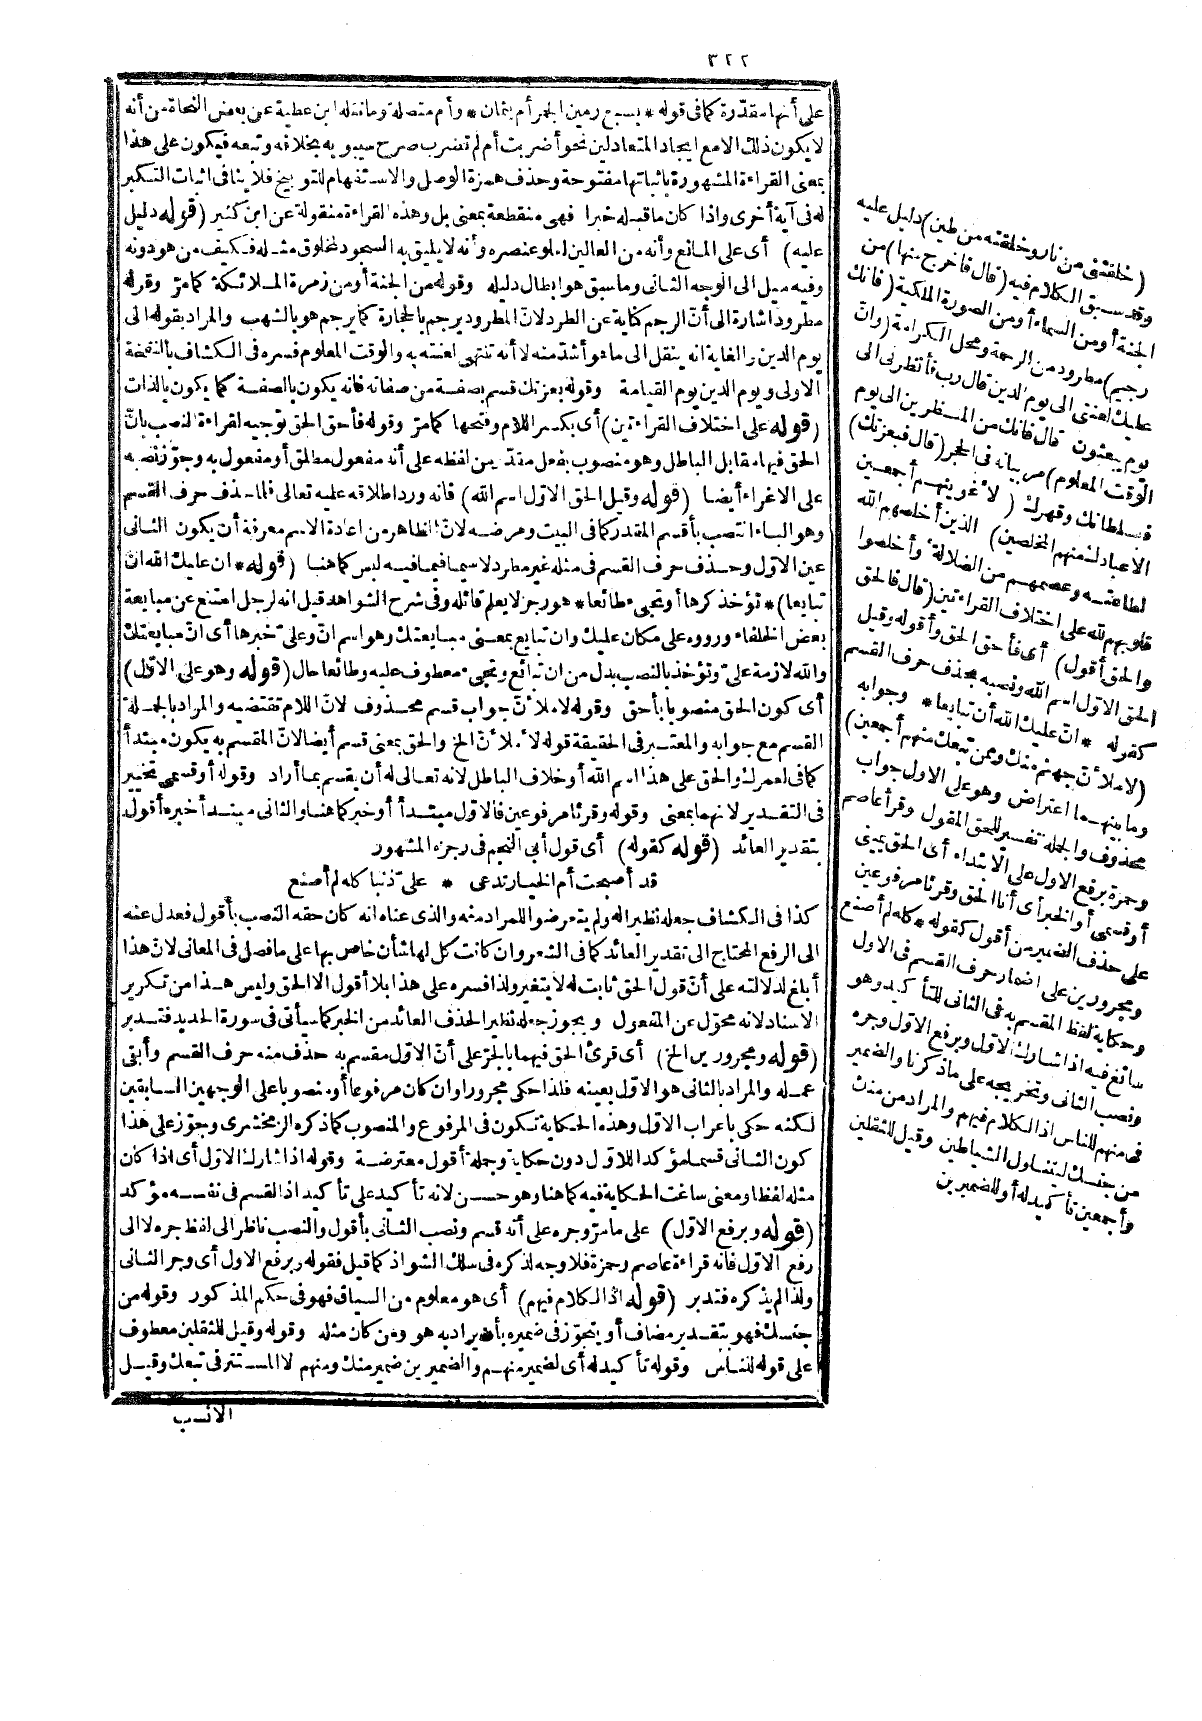 ٣٢٢
على أنها مقدّرة كما فى قوله * بسبع رمين الجمر أم بثمان * وأم متصلة وما نقله ابن عطية عن بعض النحاة من أنه
لا يكون ذلك الا مع ايجاد المتعادلين نحو أضربت أم لم تضرب صرح سيبويه بخلافه وتبعه فيكون على هذا
بمعنى القراءة المشهورة باثباتها مفتوحة وحذف همزة الوصل والاستفهام للتوبيخ فلا ينافى اثبات التكبر
له فى آية أخرى واذا كان ما قبله خبرا فهى منقطعة بمعنى بل وهذه القراءة منقولة عن ابن كثير (قوله دليل
عليه) أى على المانع وأنه من العالين لعلو عنصره وأنه لا يليق به السجود لمخلوق مثله فكيف من هو دونه
وفيه ميل الى الوجه الثانى وما سبق هو ابطال دليله وقوله من الجنة أو من زمرة الملائكة كما مرّ وقوله
مطرود اشارة الى أنّ الرجم كناية عن الطرد لانّ المطرود يرجم بالحجارة كما يرجم هو بالشهب والمراد بقوله الى
يوم الدين والغاية انه ينقل الى ما هو أشدّ منه لا أنه تنتهى لعنته به والوقت المعلوم فسره فى الكشاف بالنفخة
الاولى ويوم الدين يوم القيامة وقوله بعزتك قسم بصفة من صفاته فانه يكون بالصفة كما يكون بالذات
(قوله على اختلاف القراءتين) أى بكسر اللام وفتحها كما مرّ وقوله فأحق الحق توجيه لقراءة النصب بانّ
الحق فيها مقابل الباطل وهو منصوب بفعل مقدّر من لفظه على أنه مفعول مطلق أو مفعول به وجوّز نصبه
على الاغراء أيضا (قوله وقيل الحق الاوّل اسم الله) فانه ورد اطلاقه عليه تعالى فلما حذف حرف القسم
وهو الباء انتصب بأقسم المقدر كما فى البيت ومرضه لانّ الظاهر من اعادة الاسم معرفة أن يكون الثانى
عين الاوّل وحذف حرف القسم فى مثله غير مطرد لا سيما فيما فيه لبس كما هنا (قوله * ان عليك الله ان
تبايعا) * تؤخذ كرها أو تجىء طائعا * هو رجز لا يعلم قائله وفى شرح الشواهد قيل انه لرجل امتنع عن مبايعة
بعض الخلفاء وروو على مكان عليك وان تبايع بمعنى مبايعتك وهو اسم انّ وعلىّ خبرها أى انّ مبايعتك
والله لازمة علىّ وتؤخذ بالنصب بدل من ان تبايع وتجىء معطوف عليه وطائعا حال (قوله وهو على الاوّل)
أى كون الحق منصوبا بأحق وقوله لاملأنّ جواب قسم محذوف لانّ اللام تقتضيه والمراد بالجملة
القسم مع جوابه والمعتبر فى الحقيقة قوله لأملأنّ الخ والحق بمعنى قسم أيضا لانّ المقسم به يكون مبتدأ
كما فى لعمرك والحق على هذا اسم الله أو خلاف الباطل لانه تعالى له أن يقسم بما أراد وقوله أو قسمى تخيير
فى التقدير لانهما بمعنى وقوله وقرئا مرفوعين فالاول مبتدأ أو خبر كما هنا والثانى مبتدأ خبره أقول
بتقدير العائد (قوله كقوله) أى قول أبى النجم فى رجزه المشهور
قد أصبحت أم الخيار تدعى * علىّ ذنبا كله لم أصنع
كذا فى الكشاف جعله نظيرا له ولم يتعرضوا للمراد منه والذى عناه انه كان حقه النصب بأقول فعدل عنه
الى الرفع المحتاج الى تقدير العائد كما فى الشعر وان كانت كل لها شأن خاص بها على ما فصل فى المعانى لانّ هذا
أبلغ لدلالته على أنّ قول الحق ثابت له لا يتغير ولذا فسره على هذا بلا أقول الا الحق وليس هذا من تكرير
الاسناد لانه محوّل عن المفعول ويجوز جعله نظيرا لحذف العائد من الخبر كما سيأتى فى سورة الحديد فتدبر
(قوله ومجرورين الخ) أى قرئ الحق فيهما بالجرّ على أنّ الاوّل مقسم به حذف منه حرف القسم وأبقى
عمله والمراد بالثانى هو الاوّل بعينه فلذا حكى مجرورا وان كان مرفوعا أو منصوبا على الوجهين السابقين
لكنه حكى باعراب الاوّل وهذه الحكاية تكون فى المرفوع والمنصوب كما ذكره الزمخشرى وجوّز على هذا
كون الثانى قسما مؤكدا للاوّل دون حكاية وجملة أقول معترضة وقوله اذا شارك الاوّل أى اذا كان
مثله لفظا ومعنى ساغت الحكاية فيه كما هنا وهو حسن لانه تأكيد على تأكيد اذ القسم فى نفسه مؤكد
(قوله وبرفع الاوّل) على ما مرّ وجره على أنه قسم ونصب الثانى بأقول والنصب ناظر الى لفظ جره لا الى
رفع الاوّل فانه قراءة عاصم وحمزة فلا وجه لذكره فى سلك الشواذ كما قيل فقوله وبرفع الاول أى وجر الثانى
ولذا لم يذكره فتدبر (قوله اذ الكلام فيهم) أى هو معلوم من السياق فهو فى حكم المذكور وقوله من
جنسك فهو بتقدير مضاف أو يتجوّز فى ضميره بأن يراد به هو ومن كان مثله وقوله وقيل للثقلين معطوف
على قوله للناس وقوله تأكيد له أى لضمير منهم والضميرين ضمير منك ومنهم لا المستتر فى تبعك وقيل
الانسب
(خلقتنى من نار وخلقته من طين) دليل عليه
وقد سبق الكلام فيه (قال فاخرج منها) من
الجنة أو من السماء أو من الصورة الملكية (فانك
رجيم) مطرود من الرحمة ومحل الكرامة (وانّ
عليك لعنتى الى يوم الدين قال رب فأنظرنى الى
يوم يبعثون قال فانك من المنظرين الى يوم
الوقت المعلوم) مرّ بيانه فى الحجر (قال فبعزتك)
فبسلطانك وقهرك (لأغوينهم أجمعين
الا عبادك منهم المخلصين) الذين أخلصهم الله
لطاعته وعصمهم من الضلالة أو أخلصوا
قلوبهم لله على اختلاف القراءتين (قال فالحق
والحق أقول) أى فأحق الحق وأقوله وقيل
الحق الاوّل اسم الله ونصبه بحذف حرف القسم
كقوله * انّ عليك الله أن تبايعا * وجوابه
(لاملأنّ جهنم منك وممن تبعك منهم أجمعين)
وما بينهما اعتراض وهو على الاول جواب
محذوف والجملة تفسير للحق المقول وقرأ عاصم
وحمزة برفع الاول على الابتداء أى الحق يمينى
أو قسمى أو الخبر أى أنا الحق وقرئا مرفوعين
على حذف الضمير من أقول كقوله * كله لم أصنع
ومجرورين على اضمار حرف القسم فى الاول
وحكاية لفظ المقسم به فى الثانى للتأكيد وهو
سائغ فيه اذا شارك الاول وبرفع الاوّل وجره
ونصب الثانى وتخريجه على ما ذكرنا والضمير
فى منهم للناس اذ الكلام فيهم والمراد من منك
من جنسك ليتناول الشياطين وقيل للثقلين
وأجمعين تأكيد له أو للضميرين